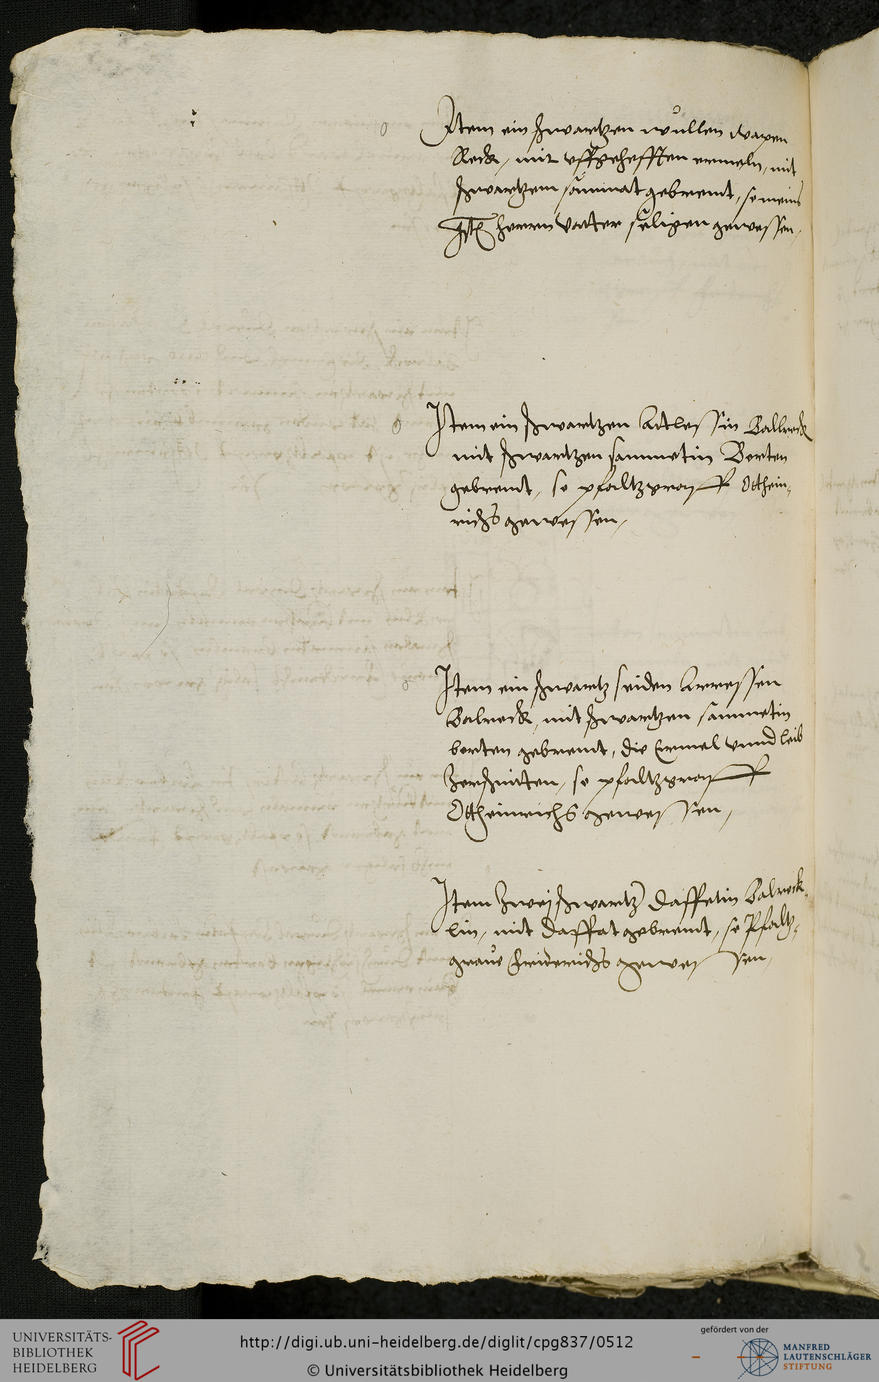 Item ein schwartzen wullen wapen
Rock, mit uffgehefften ermeln, mit
schwartzem sammat gebremt, so meins
herren Vatter säligen gewessen,
Item ein schwartzen Attlessin Ballrock
mit schwartzen sammetin Borten
gebremt, so pfaltzgraff Otthein,
richs gewessen,
Item ein schwartz seiden Arressen
Balrock, mit schwartzen sammetin
borten gebremt, die Ermel unnd leib
zerschnitten, so pfaltzgraff
Ottheinrichs gewessen,
Item Zwej schwartz daffetin Balrock,
lin, mit daffat gebremt, so Pfaltz,
grave Friderichs gewessen,
UNIVERSITÄTS-
BIBLIOTHEK
HEIDELBERG
http://digi.ub.uni-heidelberg.de/diglit/cpg837/0512
© Universitätsbibliothek Heidelberg
gefördert von der
MANFRED
LAUTENSCHLÄGER
STIFTUNG